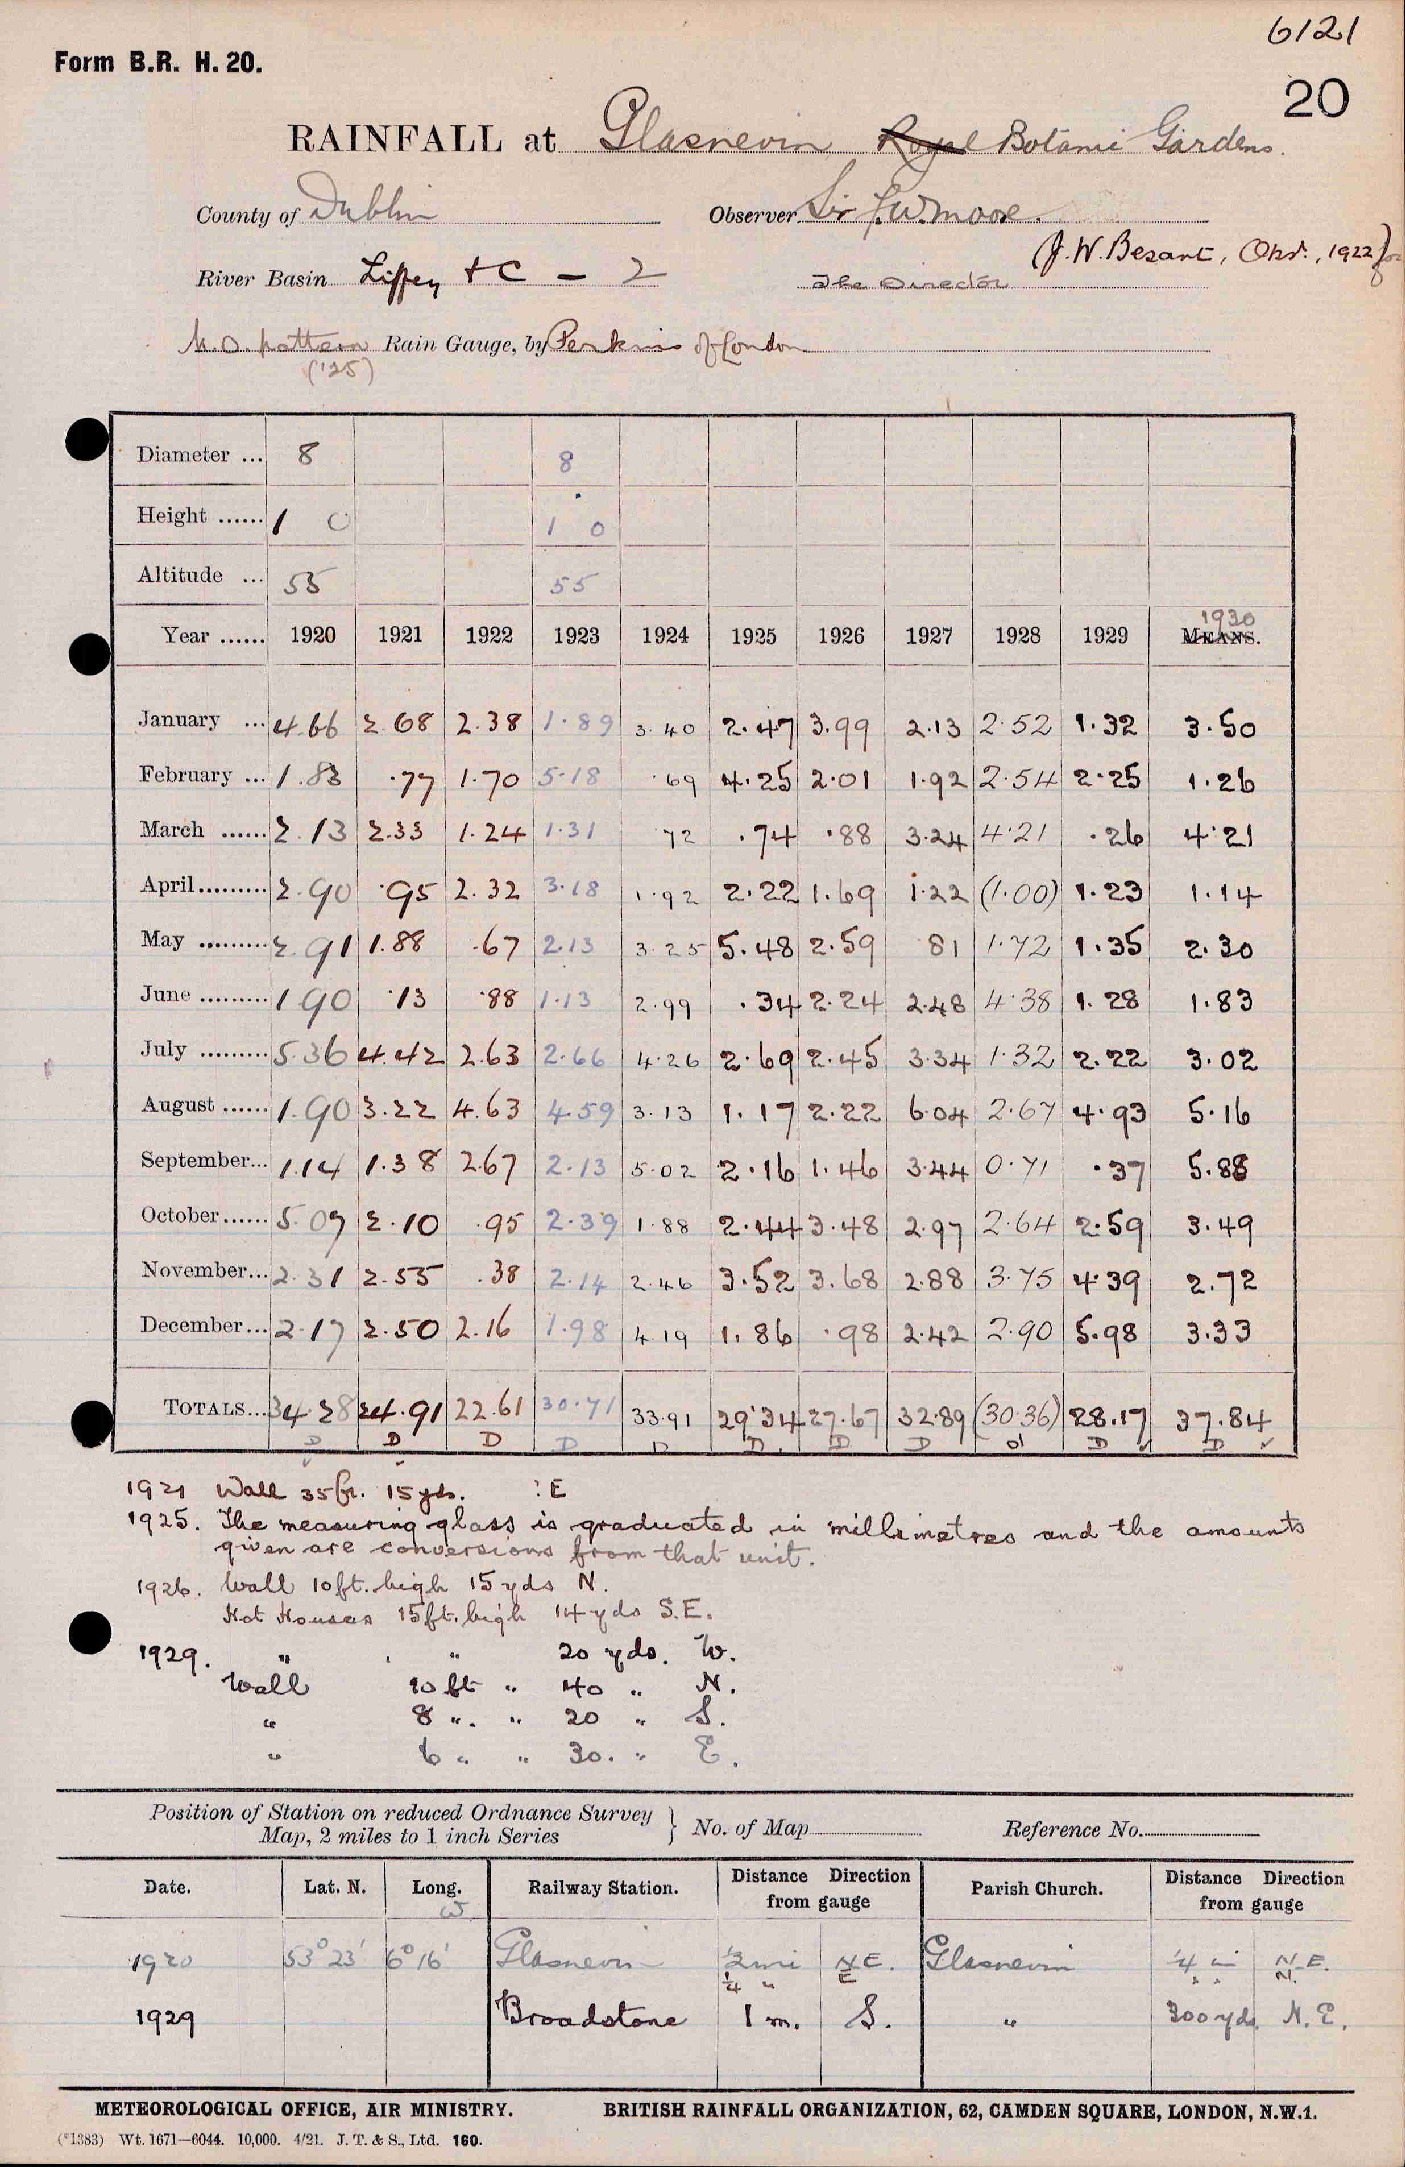 6121
Form B.R. H. 20.
20
RAINFALL at Glasnevin Royal Botanic Gardens.
County of Dublin Observer Sir F.W. Moore.
(J.W. Besant, Obsr., 1922 for
River Basin Liffey + C — 2 The Director
M.O. pattern Rain Gauge, by Perkins of London
('25)
Diameter ... 8 8
Height ...... 1 0 1 0
Altitude ... 55 55
1930
Year ...... 1920 1921 1922 1923 1924 1925 1926 1927 1928 1929 MEANS.
January ... 4.66 2.68 2.38 1.89 3.40 2.47 3.99 2.13 2.52 1.32 3.50
February ... 1.83 .77 1.70 5.18 .69 4.25 2.01 1.92 2.54 2.25 1.26
March ...... 2.13 2.33 1.24 1.31 72 .74 .88 3.24 4.21 .26 4.21
April......... 2.90 .95 2.32 3.18 1.92 2.22 1.69 1.22 (1.00) 1.23 1.14
May ......... 2.91 1.88 .67 2.13 3.25 5.48 2.59 81 1.72 1.35 2.30
June ......... 1.90 .13 .88 1.13 2.99 .34 2.24 2.48 4.38 1.28 1.83
July ......... 5.36 4.42 2.63 2.66 4.26 2.69 2.45 3.34 1.32 2.22 3.02
August ...... 1.90 3.22 4.63 4.59 3.13 1.17 2.22 6.04 2.67 4.93 5.16
September... 1.14 1.38 2.67 2.13 5.02 2.16 1.46 3.44 0.71 .37 5.88
October...... 5.07 2.10 .95 2.39 1.88 2.44 3.48 2.97 2.64 2.59 3.49
November... 2.31 2.55 .38 2.14 2.46 3.52 3.68 2.88 3.75 4.39 2.72
December... 2.17 2.50 2.16 1.98 4.19 1.86 .98 2.42 2.90 5.98 3.33
TOTALS... 34.28 24.91 22.61 30.71 33.91 29.34 27.67 32.89 (30.36) 28.17 37.84
D D D D D D D D d D D
1921 Wall 35ft. 15yds. : E
1925. The measuring glass is graduated in millimetres and the amounts
given are conversions from that unit.
1926. Wall 10ft. high 15 yds N.
Hot Houses 15ft. high 14 yds S.E.
1929. " " 20 yds. W.
Wall 10 ft " 40 " N.
" 8 " " 20 " S.
" 6 " " 30. " E.
Position of Station on reduced Ordnance Survey
Map, 2 miles to 1 inch Series } No. of Map Reference No.
Date. Lat. N. Long. Railway Station. Distance Direction from gauge Parish Church. Distance Direction from gauge
W
1920 53° 23' 6° 16' Glasnevin 1/2 mi N.E. Glasnevin 1/4 mi N.E.
1/4 " E " " N.
1929 Broadstone 1 m. S. " 300 yds. N.E.
METEOROLOGICAL OFFICE, AIR MINISTRY. BRITISH RAINFALL ORGANIZATION, 62, CAMDEN SQUARE, LONDON, N.W.1.
(*1383) Wt. 1671—6044. 10,000. 4/21. J. T. & S., Ltd. 160.